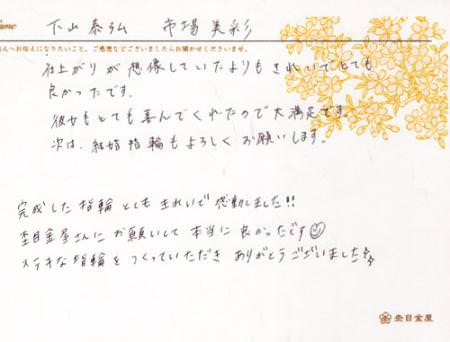 Name 下山泰弘 市場美彩
へお伝えになりたいこと、ご感想などございましたらお聞かせくださいませ。
仕上がりが想像していたよりもきれいでとても
良かったです。
彼女もとても喜んでくれたので大満足です。
次は、結婚指輪もよろしくお願いします。
完成した指輪とてもきれいで感動しました!!
杢目金屋さんにお願いして本当に良かったです☺
ステキな指輪をつくっていただきありがとうございました
杢目金屋